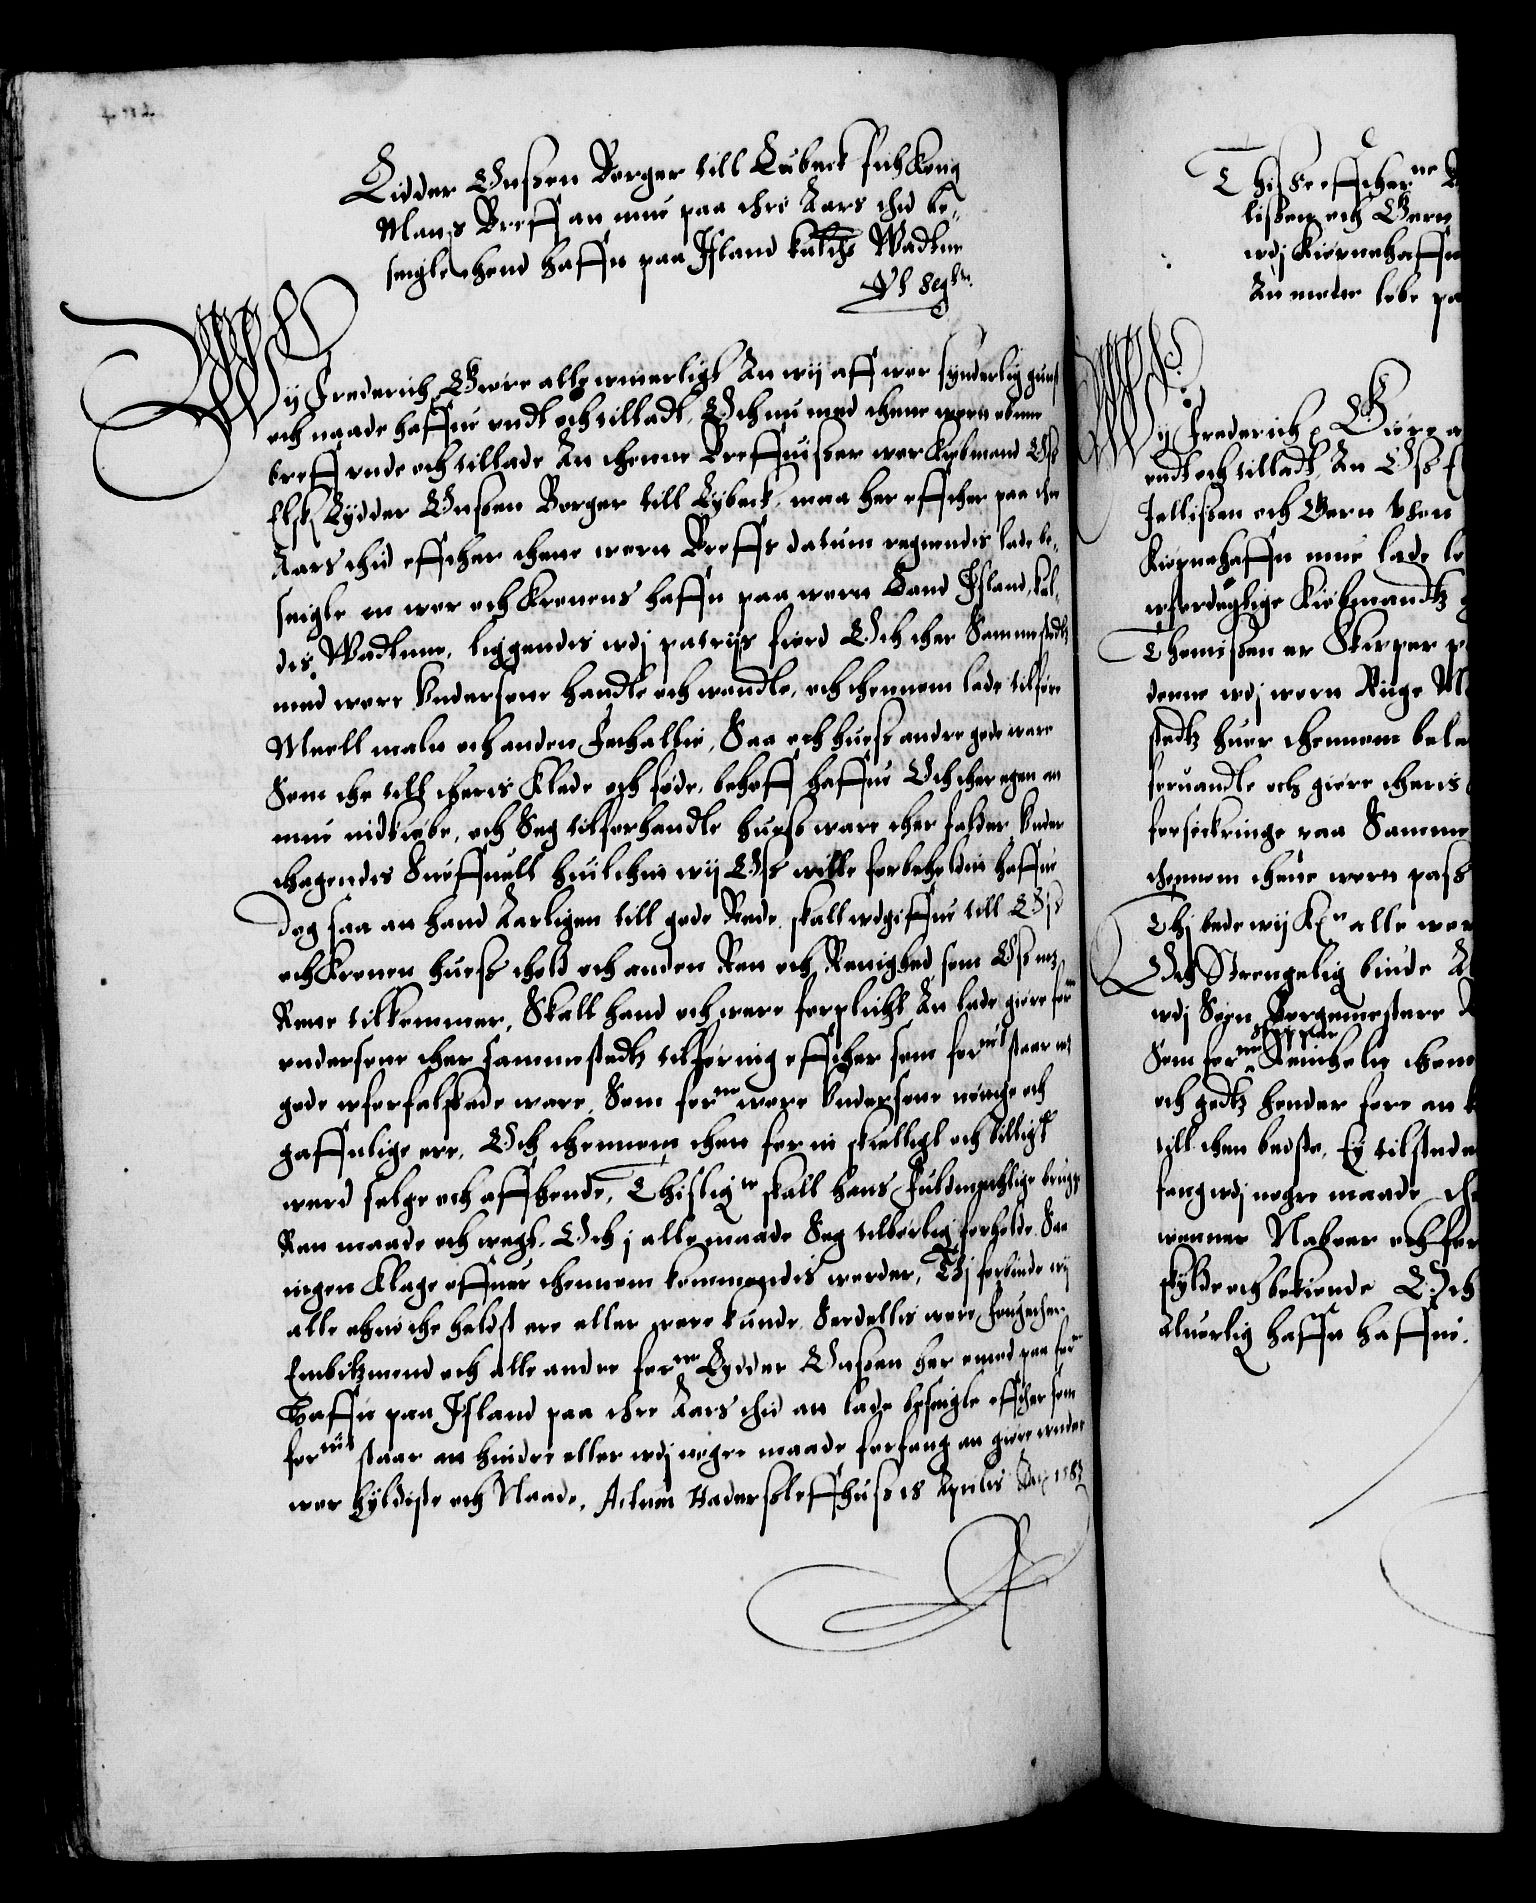 Lidder Onssen Borger till Lubeck fich Kong
Mays Breff an mue paa thre Aars thid be-
seigle thend haffn paa Island kaldes Wadtne
Wy Frederich Giøre alle witterligt At wij aff wor synderlig gunst
och naade haffue undt och tilladt, Och nu med thette wort obne
breff unde och tillade At thenne Breffuisser wor Kiøbmand Oss
Elsk Lydder Onssen Borger till Lybeck, maa her effther paa thre
Aars thid effther thette wort Breffs datum regnendis lade be-
seigle en wor och Kronens haffn paa wort Land Island, kal-
dis Wadtnne, liggendis wdj patrijs fiord Och ther Sammestedtz
med wore Undersotte handle och wandle, och thennom lade tilføre
Meell malt och anden Fethallie, Saa och huess andre gode ware
Som the till theris Klede och føde, behoff haffue Och ther egen an
mue indkiøbe, och Seg tilforhandle huess ware ther falder Under
thagendis Sueffuell huilchen wij Oss wille forbeholdit haffue
Dog saa an hand Aarligen till gode Rede skall udgiffue till Oss
och Kronen huess thold och anden Ren och Retighed som Oss mz
Rette tilkommer, Skall hand och were forplicht At lade giøre for:ne
undersotte ther sammestedtz tilføring effther som for:uit staar mz
gode uforfalskede ware, Som for:ne wore Undersotte nøttige och
gaffnlige ere, Och thennom then for en skielligt och billigt
werd selge och affhende, Thisligiste skall hans Fuldmechtige bruge
Ren maade och wegt. Och j alle maade Seg tilbørlig forholde Saa
ingen Klage offuer thennom kommendis worder, Thj forbiude wij
alle ehuo the heldst ere eller were kunde Serdellis wore Fougether
Embitzmend och alle andre for:ne Lydder Onssen her emod paa for:ne
Haffn paa Island paa thre Aars thid an lade beseigle effther som
for:uit staar an hindre eller wdj nogre maade forfang an giøre under
wor hyldiste och Naade, Actum Haderssleffhuss 18 Aprilis Anno 1583
Thisse effther:ne
lissen och Gern
wdj Kiopnehaffn
An motte løbe pa
Wy Frederich Giøre a
undt och tilladt, An Oss E
Jellissen och Gern
Kiopnehaffn mue lade lø
uferdeglige Kiøbmandtz
Thomissen er Skipper p
denne wdj wort Rige
stedtz huor thennom bele
foruandle och giøre theris
forsickringe paa Samme
thennom thette wort pass
Thj bede wij alle wor
Och Strengelig biude
wdj Søen Borgemestere
Som for:ne Skipper
och godtz hender fore an
till then bedste, Ey tilstede
fang wdj nogre maade the
wenner Naboer och for
skylde och bekiende Och
Aluerlig hafft haffue.